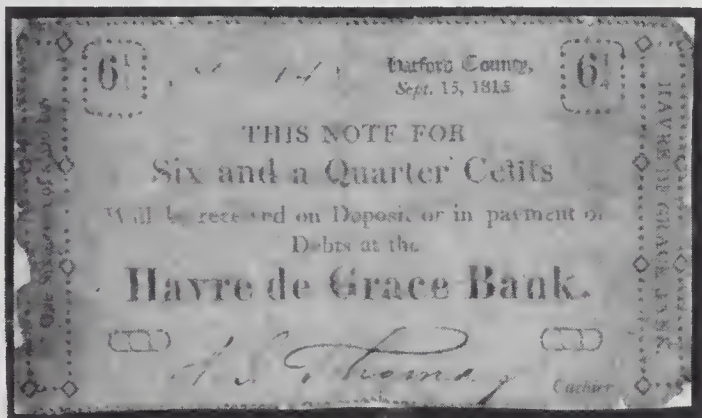 6 1/4
Hatford County,
Sept. 15, 1815
6 1/4
THIS NOTE FOR
Six and a Quarter Cents
Will be received on Deposit or in payment of
Debts at the
Havre de Grace Bank.
Thomas
Cashier
HAVRE DE GRACE BANK